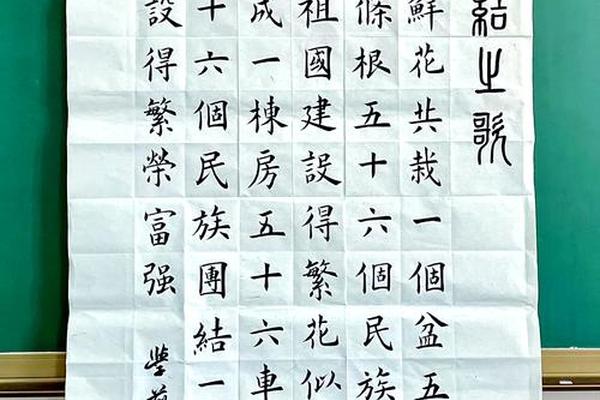 結之歌
鮮花共栽一個盆五
條根五十六個民族
祖國建設得繁花似
成一棟房五十六車
十六個民族團結一
設得繁榮富强